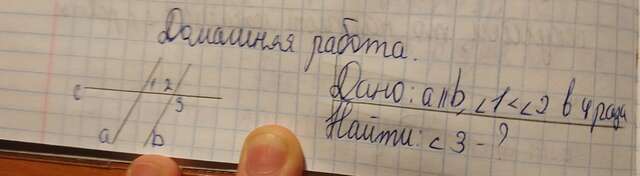 Домашняя работа.
с 1 2
3
a b
Дано: a || b, <1 < <2 в 4 раза
Найти: < 3 - ?